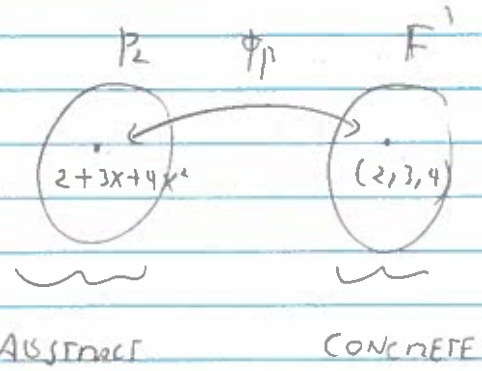 P₂ ϕβ F³
2+3x+4x² (2,3,4)
ABSTRACT CONCRETE